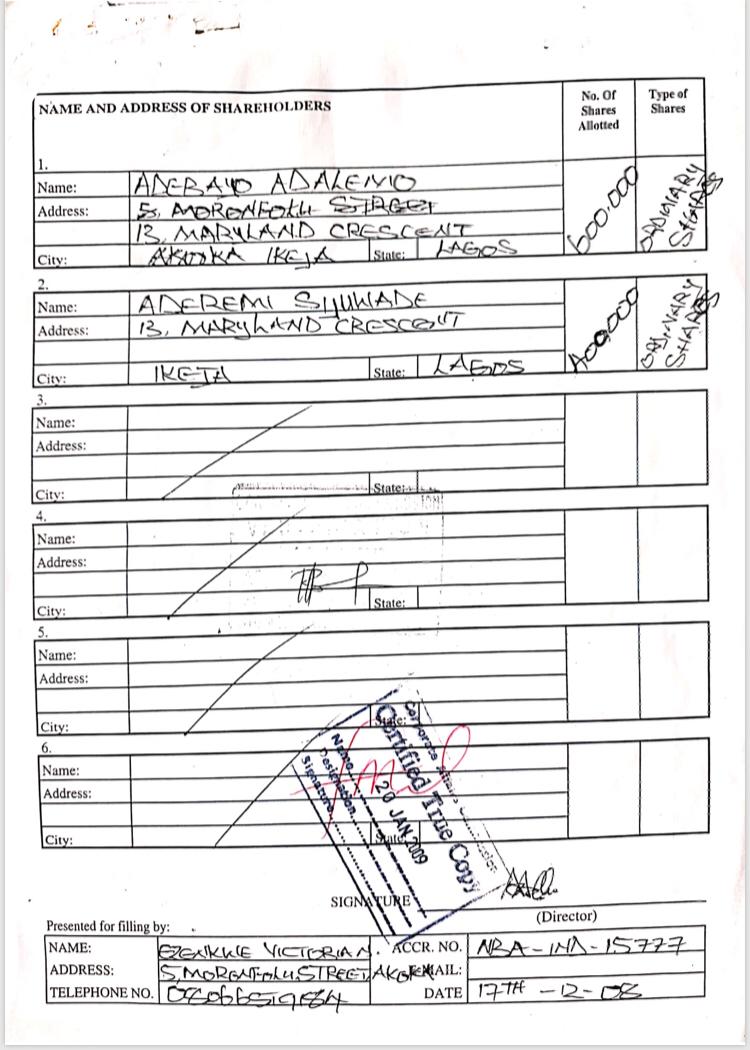 NAME AND ADDRESS OF SHAREHOLDERS No. Of Shares Allotted Type of Shares
1.
Name: ADEBAYO ADALEMO 600,000 ORDINARY SHARES
Address: 5, MORENFOLU STREET
13, MARYLAND CRESCENT
City: AKOKA IKEJA State: LAGOS
2.
Name: ADEREMI SIJUWADE 400,000 ORDINARY SHARES
Address: 13, MARYLAND CRESCENT
City: IKEJA State: LAGOS
3.
Name:
Address:
City: State:
4.
Name:
Address:
City: State:
5.
Name:
Address:
City: State:
6.
Name:
Address:
City: State:
Corporate Affairs Commission
Certified True Copy
20 JAN 2009
Name
Designation
Signature
SIGNATURE
(Director)
Presented for filling by:
NAME: VICTORIA N. ACCR. NO. NBA-IND-15777
ADDRESS: 5, MORENFOLU STREET, AKOKA EMAIL:
TELEPHONE NO. DATE 17TH -12-08